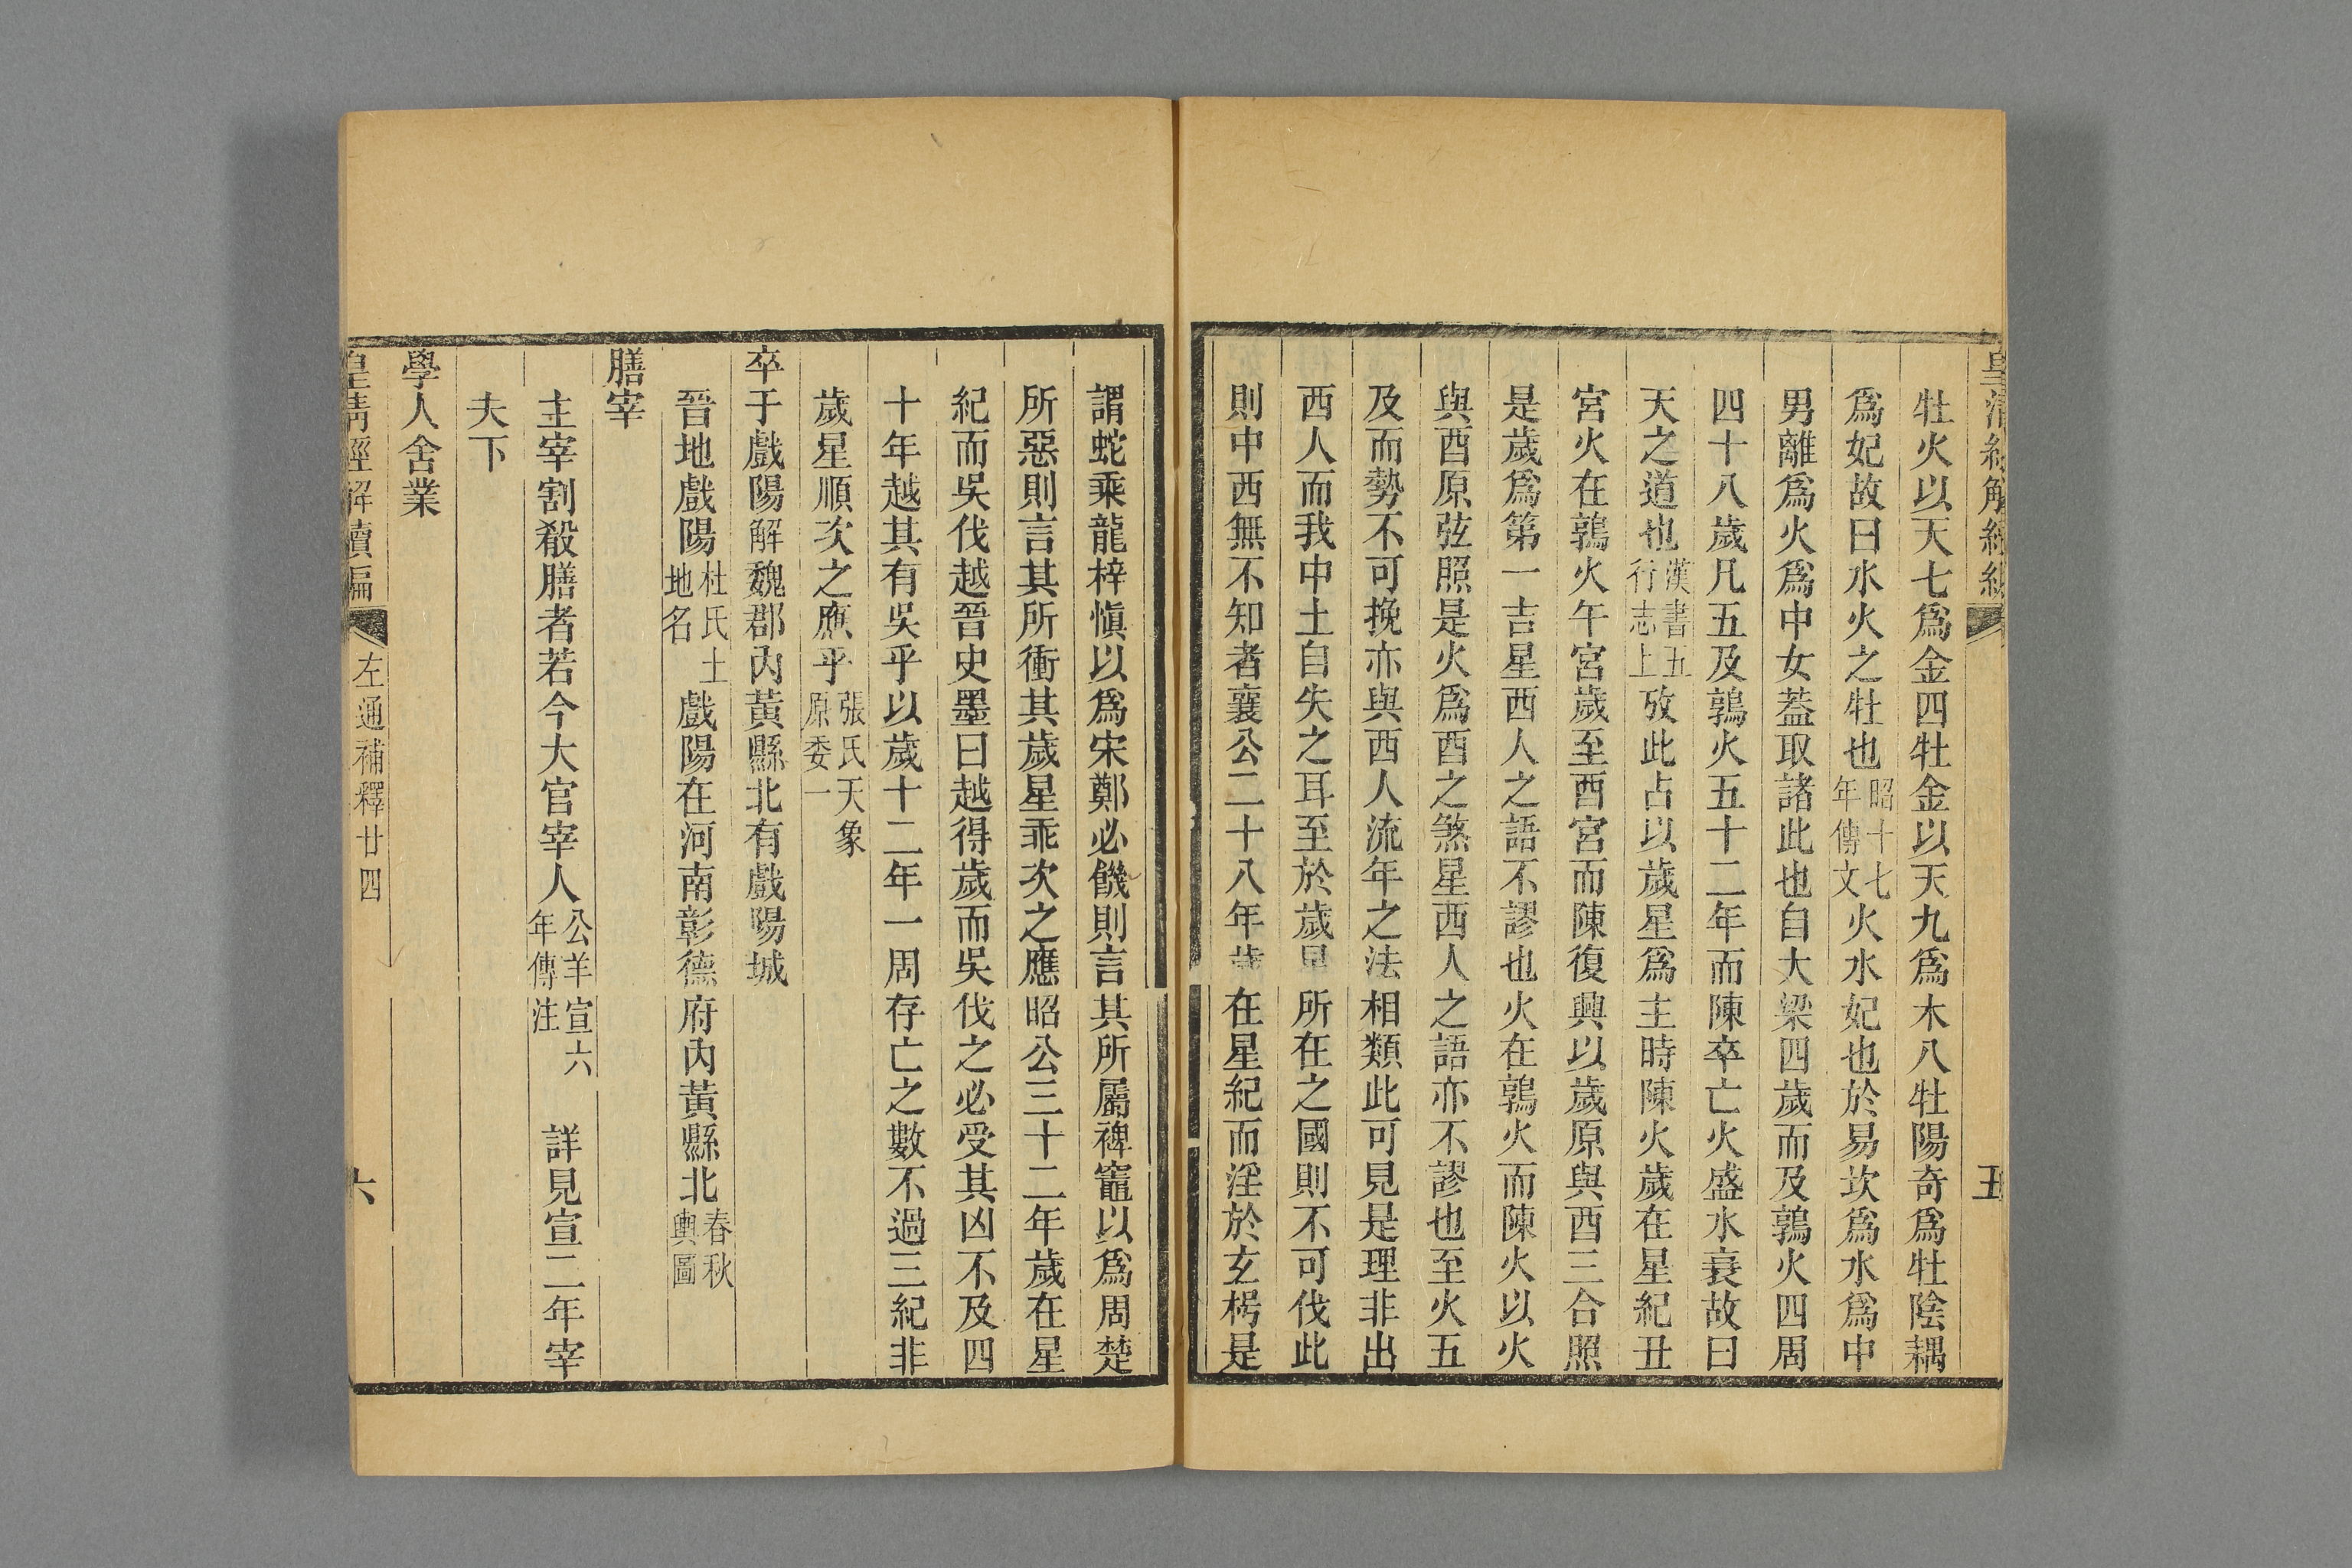 牡火以天七爲金四牡金以天九爲木八牡陽奇爲牡陰耦
爲妃故曰水火之牡也昭十七年傳文火水妃也於易坎爲水爲中
男離爲火爲中女蓋取諸此也自大梁四歲而及鶉火四周
四十八歲凡五及鶉火五十二年而陳卒亡火盛水衰故曰
天之道也漢書五行志上攷此占以歲星爲主時陳火歲在星紀丑
宮火在鶉火午宮歲至酉宮而陳復興以歲原與酉三合照
是歲爲第一吉星西人之語不謬也火在鶉火而陳火以火
與酉原弦照是火爲酉之煞星西人之語亦不謬也至火五
及而勢不可挽亦與西人流年之法相類此可見是理非出
西人而我中土自失之耳至於歲星所在之國則不可伐此
則中西無不知者襄公二十八年歲在星紀而淫於玄枵是
五
謂蛇乘龍梓愼以爲宋鄭必饑則言其所屬裨竈以爲周楚
所惡則言其所衝其歲星乖次之應昭公三十二年歲在星
紀而吳伐越晉史墨曰越得歲而吳伐之必受其凶不及四
十年越其有吳乎以歲十二年一周存亡之數不過三紀非
歲星順次之應乎張氏天象原委一
卒于戲陽解魏郡內黃縣北有戲陽城
晉地戲陽杜氏土地名戲陽在河南彰德府內黃縣北春秋輿圖
膳宰
主宰割殺膳者若今大官宰人公羊宣六年傳注 詳見宣二年宰
夫下
學人舍業
皇清經解續編 左通補釋廿四 六